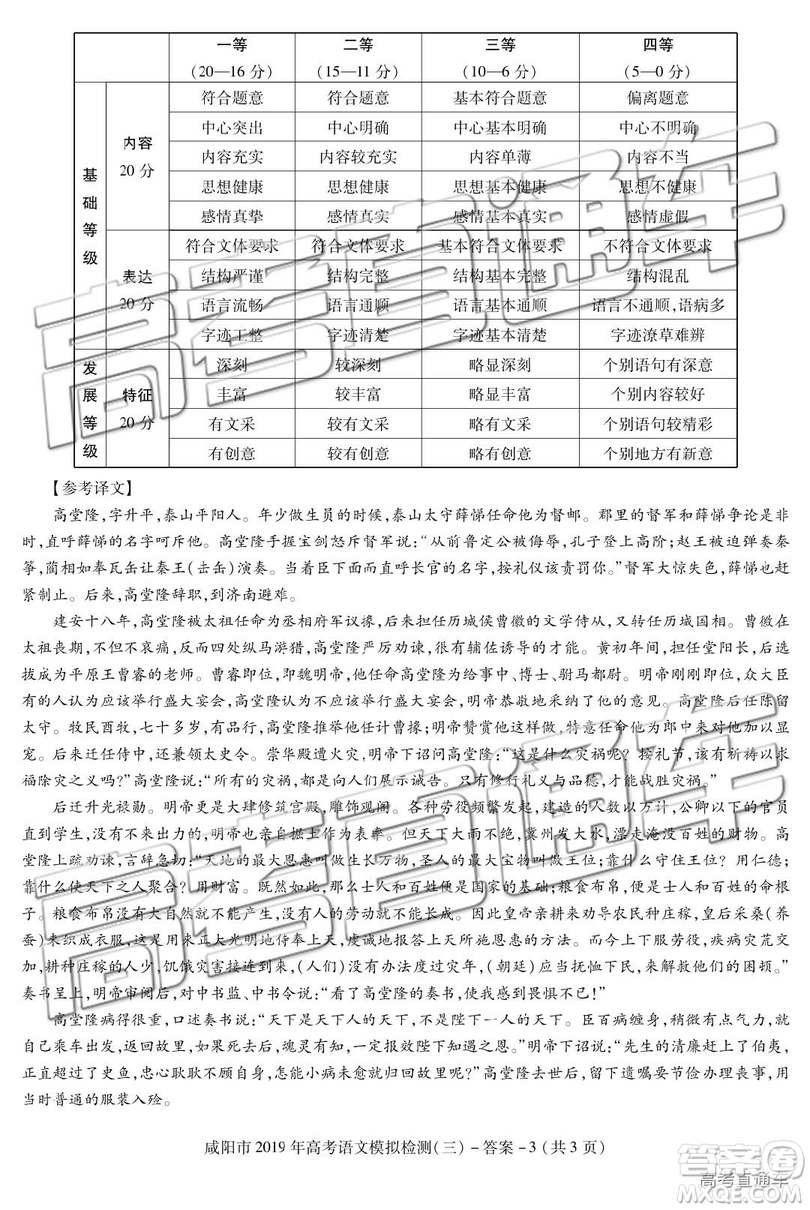 一等 二等 三等 四等
(20—16 分) (15—11 分) (10—6 分) (5—0 分)
基础等级
内容
20 分
符合题意 符合题意 基本符合题意 偏离题意
中心突出 中心明确 中心基本明确 中心不明确
内容充实 内容较充实 内容单薄 内容不当
思想健康 思想健康 思想基本健康 思想不健康
感情真挚 感情真实 感情基本真实 感情虚假
表达
20 分
符合文体要求 符合文体要求 基本符合文体要求 不符合文体要求
结构严谨 结构完整 结构基本完整 结构混乱
语言流畅 语言通顺 语言基本通顺 语言不通顺,语病多
字迹工整 字迹清楚 字迹基本清楚 字迹潦草难辨
发展等级
特征
20 分
深刻 较深刻 略显深刻 个别语句有深意
丰富 较丰富 略显丰富 个别内容较好
有文采 较有文采 略有文采 个别语句较精彩
有创意 较有创意 略有创意 个别地方有新意
【参考译文】
高堂隆,字升平,泰山平阳人。年少做生员的时候,泰山太守薛悌任命他为督邮。郡里的督军和薛悌争论是非
时,直呼薛悌的名字呵斥他。高堂隆手握宝剑怒斥督军说:“从前鲁定公被侮辱,孔子登上高阶;赵王被迫弹奏秦
筝,蔺相如奉瓦缶让秦王(击缶)演奏。当着臣下面直呼长官的名字,按礼仪该责罚你。”督军大惊失色,薛悌也赶
紧制止。后来,高堂隆辞职,到济南避难。
建安十八年,高堂隆被太祖任命为丞相府军议掾,后来担任历城侯曹徽的文学侍从,又转任历城国相。曹徽在
太祖丧期,不但不哀痛,反而四处纵马游猎,高堂隆严厉劝谏,很有辅佐诱导的才能。黄初年间,担任堂阳长,后选
拔成为平原王曹睿的老师。曹睿即位,即魏明帝,他任命高堂隆为给事中、博士、驸马都尉。明帝刚刚即位,众大臣
有的人认为应该举行盛大宴会,高堂隆认为不应该举行盛大宴会,明帝恭敬地采纳了他的意见。高堂隆后任陈留
太守。牧民酉牧,七十多岁,有品行,高堂隆推举他任计曹掾;明帝赞赏他这样做,特意任命他为郎中来加以显
宠。后来迁任侍中,还兼领太史令。崇华殿遭火灾,明帝下诏问高堂隆:“这是什么灾祸呢?按礼节,该有祈祷以求
福除灾之义吗?”高堂隆说:“所有的灾祸,都是向人们展示告诫。只有修行礼义与品德,才能战胜灾祸。”
后迁升光禄勋。明帝更是大肆修筑宫殿,雕饰观阁。各种劳役频繁发起,建造的人数以万计,公卿以下的官员
直到学生,没有不来出力的,明帝也亲自掘土以作为表率。但天下大雨不绝,冀州发大水,漂走淹没百姓的财物。高
堂隆上疏劝谏,言辞急切:“天地的最大恩惠叫做生长万物,圣人的最大宝物叫做王位;靠什么守住王位?用仁德;
靠什么使天下之人聚合?用财富。既然如此,那么士人和百姓便是国家的基础;粮食布帛,便是士人和百姓的命根
子。粮食布帛没有自然就不能产生,没有人的劳动就不能长成。因此皇帝亲耕来劝导农民种庄稼,皇后采桑(养
蚕)来织成衣服,这是用来正大光明地侍奉上天,虔诚地报答上天所施恩惠的方法。而今上下服劳役,疾病灾荒交
加,耕种庄稼的人少,饥饿灾害接连到来,(人们)没有办法度过灾年,(朝廷)也应当抚恤下民,来解救他们的困顿。”
奏书呈上,明帝审阅后,对中书监、中书令说:“看了高堂隆的奏书,使我感到畏惧不已!”
高堂隆病得很重,口述奏书说:“天下是天下人的天下,不是陛下一人的天下。臣百病缠身,稍微有点气力,就
自己乘车出发,返回故里,如果死去后,魂灵有知,一定报效陛下知遇之恩。”明帝下诏说:“先生的清廉赶上了伯夷,
正直超过了史鱼,忠心耿耿不顾自身,怎能小病未愈就归回故里呢?”高堂隆去世后,留下遗嘱要节俭办理丧事,用
当时普通的服装入殓。
咸阳市 2019 年高考语文模拟检测(三)－答案－3 (共 3 页)
高考直通车
答案圈
高考直通车
MXQE.COM